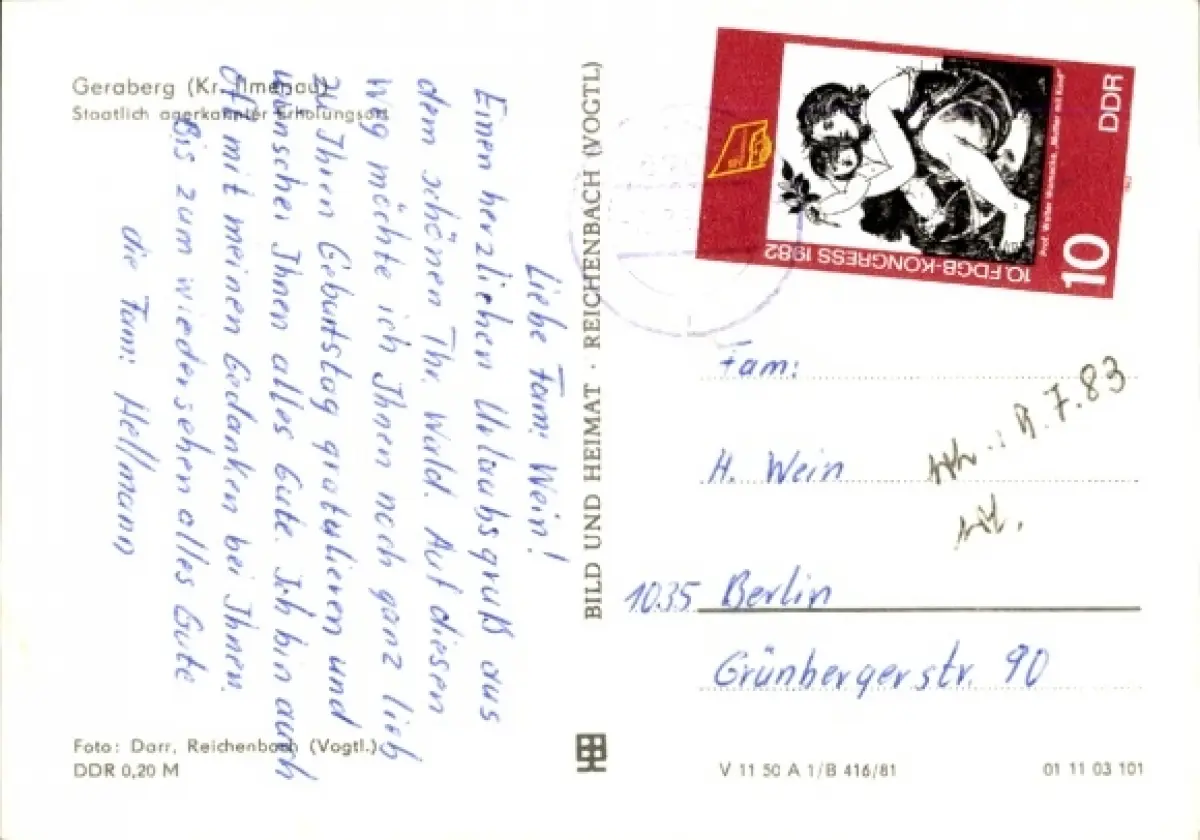 Geraberg (Kr. Ilmenau)
Staatlich anerkannter Erholungsort
Liebe Fam: Wein!
Einen herzlichen Urlaubsgruß aus
dem schönen Thr. Wald. Auf diesen
Weg möchte ich Ihnen noch ganz lieb
zu Ihren Geburtstag gratulieren und
wünschen Ihnen alles Gute. Ich bin auch
oft mit meinen Gedanken bei Ihnen.
Bis zum wiedersehen alles Gute
die Fam: Hellmann
Foto: Darr, Reichenbach (Vogtl.)
DDR 0,20 M
BILD UND HEIMAT · REICHENBACH (VOGTL)
10. FDGB-KONGRESS 1982
Prof. Walter Womacka, „Mutter mit Kind"
DDR
10
Fam:
H. Wein
9.7.83
1035 Berlin
Grünbergerstr. 90
V 11 50 A 1/B 416/81
01 11 03 101